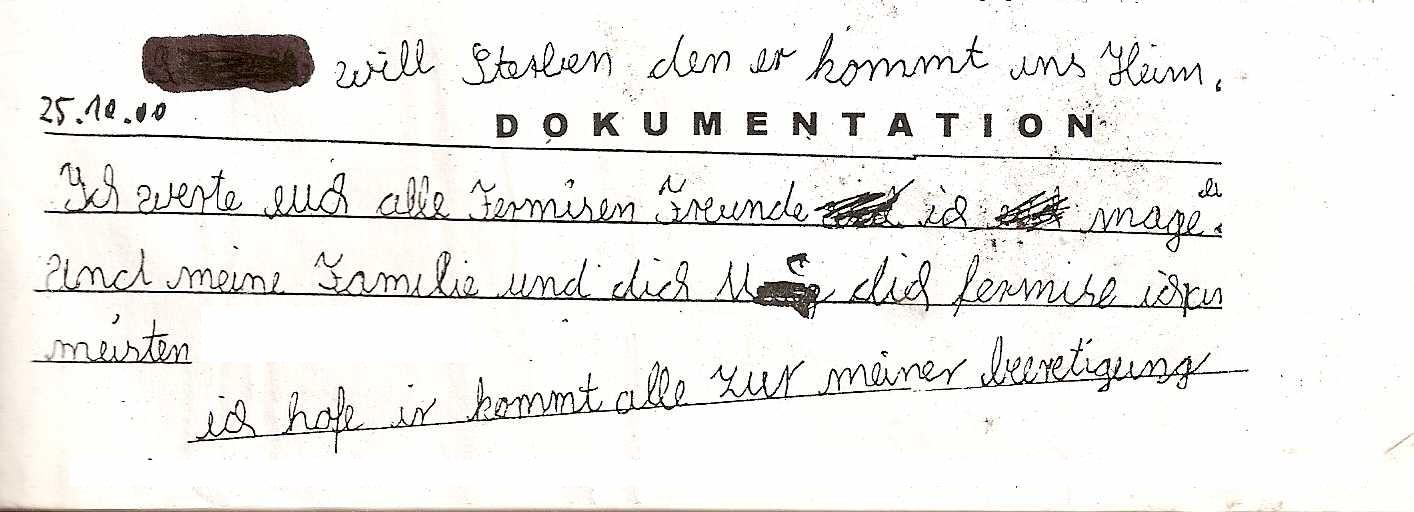 will Sterben den er kommt ins Heim.
25.10.00
DOKUMENTATION
Ich werte euch alle Fermisen Freunde ich mage
und meine Familie und dich dich fermise ich
meisten
ich hofe ir kommt alle zur meiner beeretigung